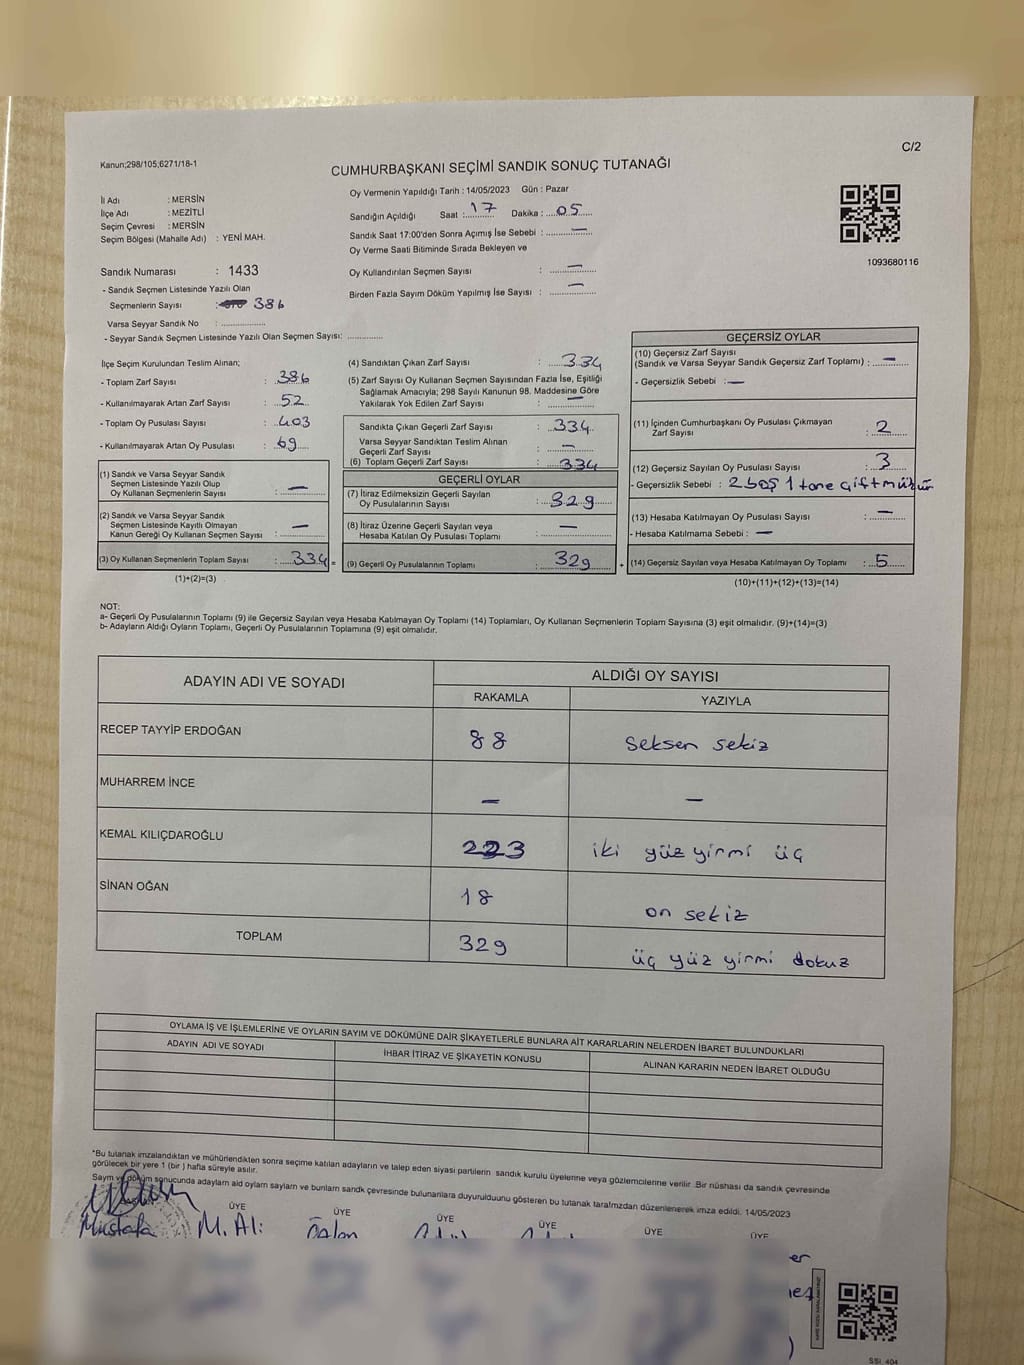 Kanun;298/105;6271/18-1
C/2
CUMHURBAŞKANI SEÇİMİ SANDIK SONUÇ TUTANAĞI
İl Adı : MERSİN
İlçe Adı : MEZİTLİ
Seçim Çevresi : MERSİN
Seçim Bölgesi (Mahalle Adı) : YENİ MAH.
Oy Vermenin Yapıldığı Tarih : 14/05/2023 Gün : Pazar
Sandığın Açıldığı Saat : 17 Dakika : 05
Sandık Saat 17:00'den Sonra Açımış İse Sebebi : —
Oy Verme Saati Bitiminde Sırada Bekleyen ve
Oy Kullandırılan Seçmen Sayısı : —
Birden Fazla Sayım Döküm Yapılmış İse Sayısı : —
1093680116
Sandık Numarası : 1433
- Sandık Seçmen Listesinde Yazılı Olan
Seçmenlerin Sayısı : 386
Varsa Seyyar Sandık No :
- Seyyar Sandık Seçmen Listesinde Yazılı Olan Seçmen Sayısı:
İlçe Seçim Kurulundan Teslim Alınan;
- Toplam Zarf Sayısı : 386
- Kullanılmayarak Artan Zarf Sayısı : 52
- Toplam Oy Pusulası Sayısı : 403
- Kullanılmayarak Artan Oy Pusulası : 69
(1) Sandık ve Varsa Seyyar Sandık
Seçmen Listesinde Yazılı Olup
Oy Kullanan Seçmenlerin Sayısı : —
(2) Sandık ve Varsa Seyyar Sandık
Seçmen Listesinde Kayıtlı Olmayan
Kanun Gereği Oy Kullanan Seçmen Sayısı : —
(3) Oy Kullanan Seçmenlerin Toplam Sayısı : 334 =
(1)+(2)=(3)
(4) Sandıktan Çıkan Zarf Sayısı : 334
(5) Zarf Sayısı Oy Kullanan Seçmen Sayısından Fazla İse, Eşitliği
Sağlamak Amacıyla; 298 Sayılı Kanunun 98. Maddesine Göre
Yakılarak Yok Edilen Zarf Sayısı : —
Sandıkta Çıkan Geçerli Zarf Sayısı : 334
Varsa Seyyar Sandıktan Teslim Alınan
Geçerli Zarf Sayısı : —
(6) Toplam Geçerli Zarf Sayısı : 334
GEÇERLİ OYLAR
(7) İtiraz Edilmeksizin Geçerli Sayılan
Oy Pusulalarının Sayısı : 329
(8) İtiraz Üzerine Geçerli Sayılan veya
Hesaba Katılan Oy Pusulası Toplamı : —
(9) Geçerli Oy Pusulalarının Toplamı : 329 +
GEÇERSİZ OYLAR
(10) Geçersiz Zarf Sayısı
(Sandık ve Varsa Seyyar Sandık Geçersiz Zarf Toplamı) : —
- Geçersizlik Sebebi : —
(11) İçinden Cumhurbaşkanı Oy Pusulası Çıkmayan
Zarf Sayısı : 2
(12) Geçersiz Sayılan Oy Pusulası Sayısı : 3
- Geçersizlik Sebebi : 2 boş 1 tane çift mühür
(13) Hesaba Katılmayan Oy Pusulası Sayısı : —
- Hesaba Katılmama Sebebi : —
(14) Geçersiz Sayılan veya Hesaba Katılmayan Oy Toplamı : 5
(10)+(11)+(12)+(13)=(14)
NOT:
a- Geçerli Oy Pusulalarının Toplamı (9) ile Geçersiz Sayılan veya Hesaba Katılmayan Oy Toplamı (14) Toplamları, Oy Kullanan Seçmenlerin Toplam Sayısına (3) eşit olmalıdır. (9)+(14)=(3)
b- Adayların Aldığı Oyların Toplamı, Geçerli Oy Pusulalarının Toplamına (9) eşit olmalıdır.
ADAYIN ADI VE SOYADI ALDIĞI OY SAYISI
RAKAMLA YAZIYLA
RECEP TAYYİP ERDOĞAN 88 Seksen sekiz
MUHARREM İNCE — —
KEMAL KILIÇDAROĞLU 223 iki yüz yirmi üç
SİNAN OĞAN 18 on sekiz
TOPLAM 329 üç yüz yirmi dokuz
OYLAMA İŞ VE İŞLEMLERİNE VE OYLARIN SAYIM VE DÖKÜMÜNE DAİR ŞİKAYETLERLE BUNLARA AİT KARARLARIN NELERDEN İBARET BULUNDUKLARI
ADAYIN ADI VE SOYADI İHBAR İTİRAZ VE ŞİKAYETİN KONUSU ALINAN KARARIN NEDEN İBARET OLDUĞU
*Bu tutanak imzalandıktan ve mühürlendikten sonra seçime katılan adayların ve talep eden siyasi partilerin sandık kurulu üyelerine veya gözlemcilerine verilir. Bir nüshası da sandık çevresinde
görülecek bir yere 1 (bir ) hafta süreyle asılır.
Sayım ve döküm sonucunda adayların aldı oyların sayları ve bunların sandk çevresinde bulunanlara duyurulduunu gösteren bu tutanak tarafmzdan düzenlenerek imza edildi. 14/05/2023
ÜYE ÜYE ÜYE ÜYE ÜYE ÜYE
Mustafa M. Ali
SSI. 404